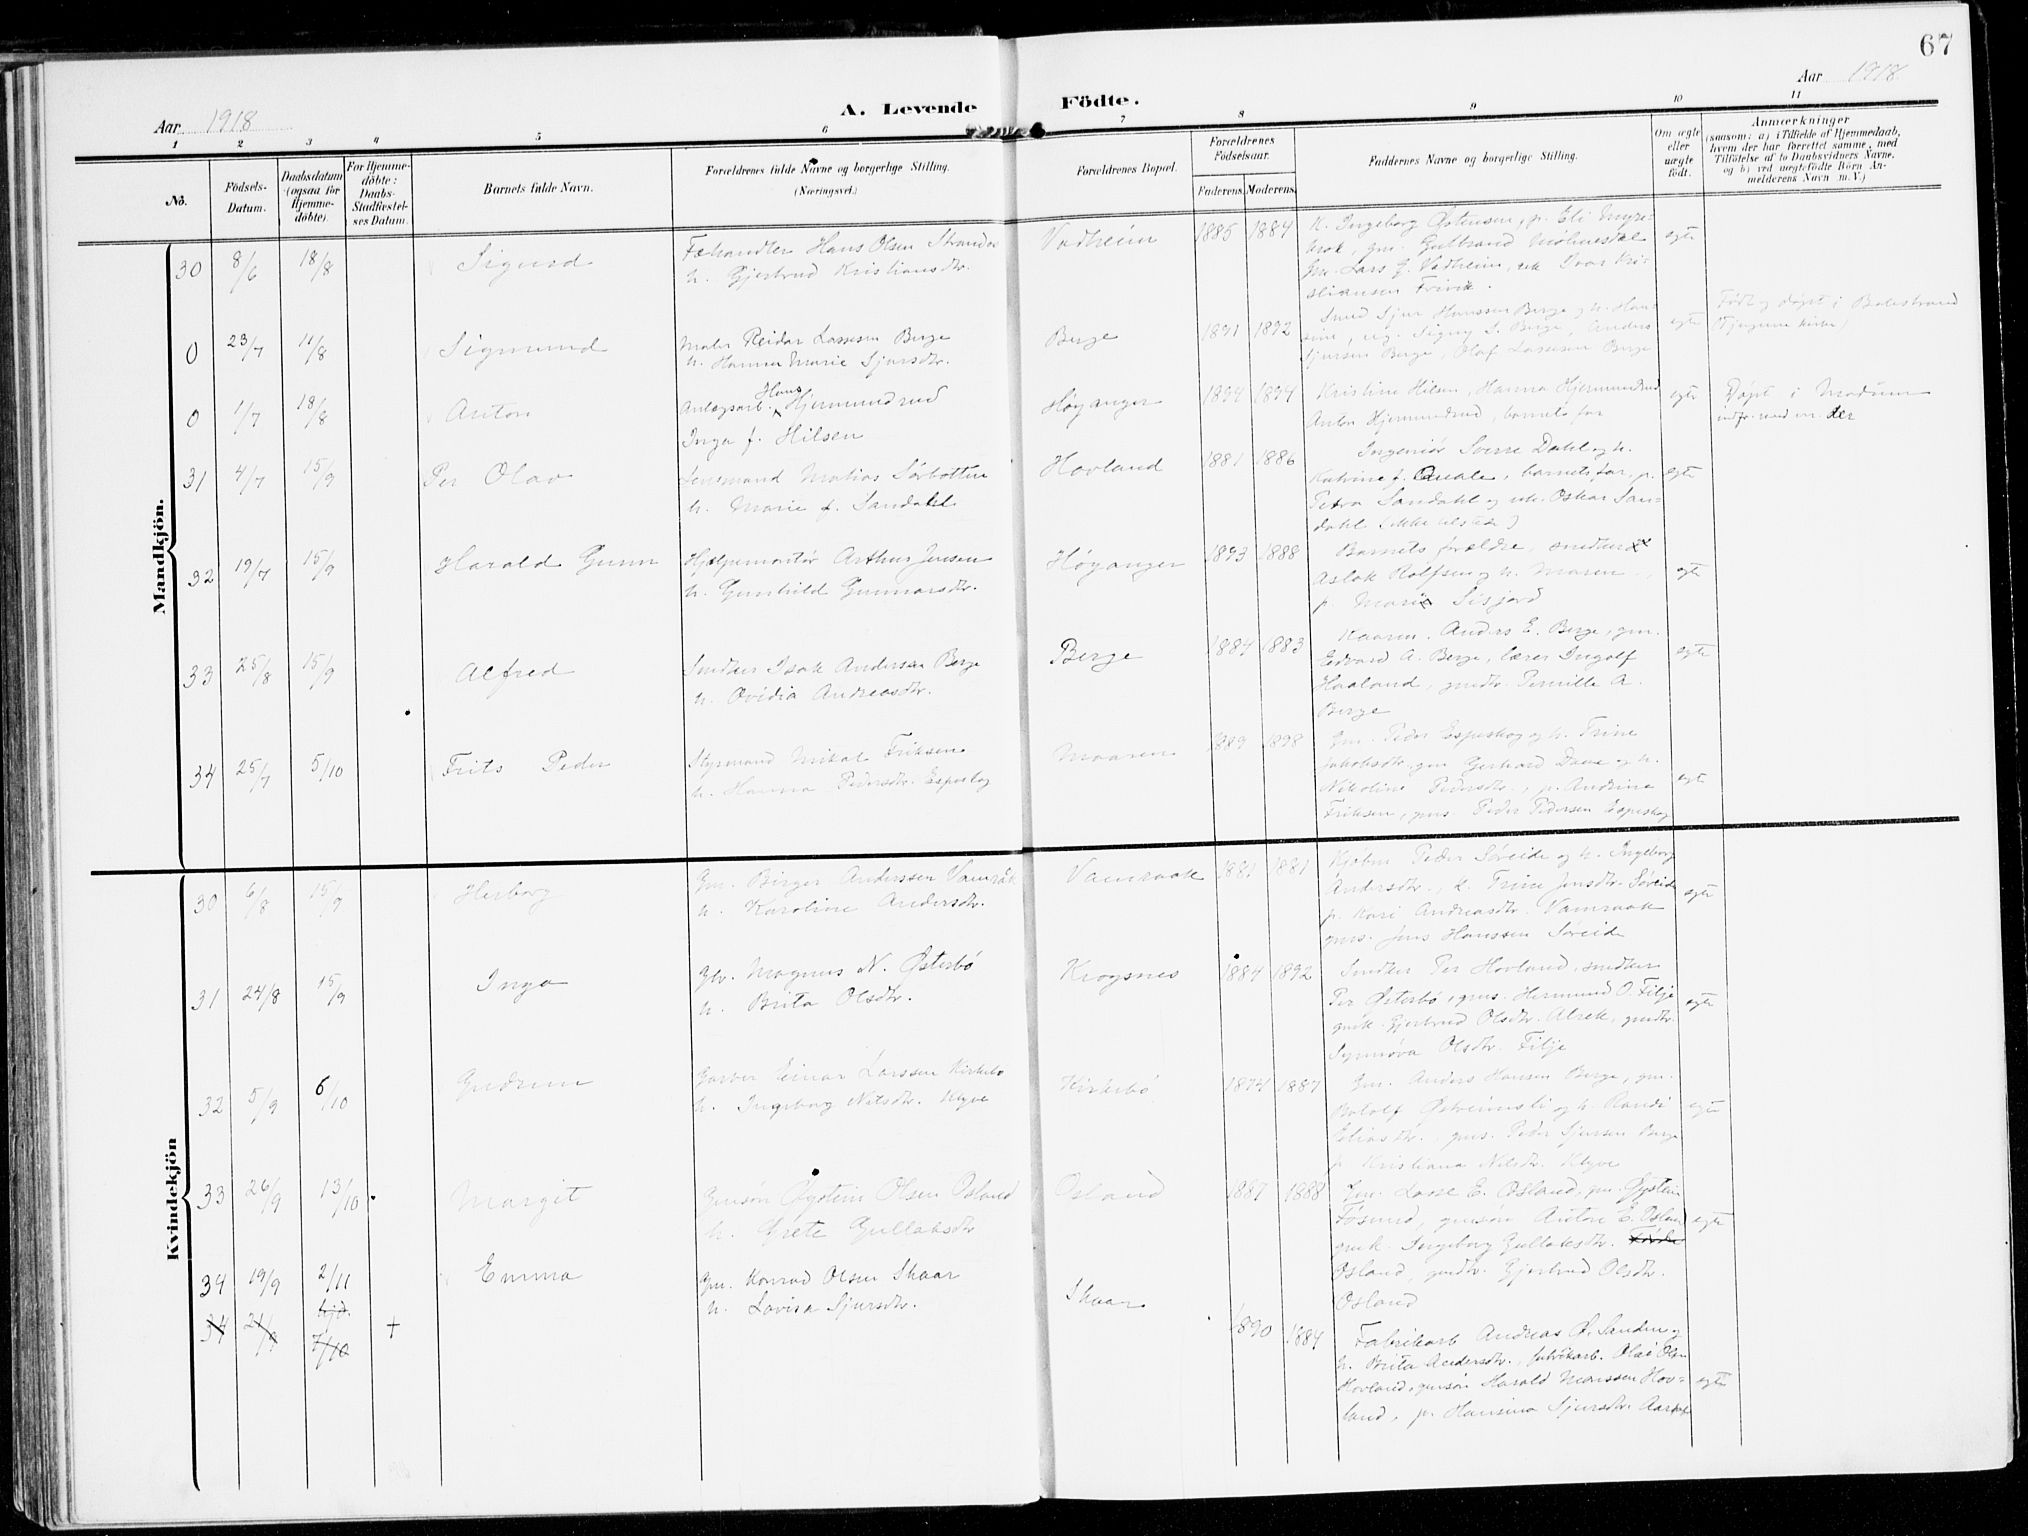 67
Aar 1918
A. Levende Födte.
Aar 1918
1 2 3 4 5 6 7 8 9 10 11
No.
Födsels-Datum.
Daabsdatum (ogsaa for Hjemme-döbte).
For Hjemme-döbte: Daabs-Stadfæstel-ses Datum.
Barnets fulde Navn.
Forældrenes fulde Navne og borgerlige Stilling.
(Næringsvei.)
Forældrenes Bopæl.
Forældrenes Födselsaar.
Faderens. Moderens.
Faddernes Navne og borgerlige Stilling.
Om ægte eller uægte födt.
Anmærkninger
(saasom: a) i Tilfælde af Hjemmedaab,
hvem der har forrettet samme, med
Tilföielse af to Daabsvidners Navne,
og b) ved uægtefödte Börn An-
melderens Navn m. V.)
Mandkjön.
30 8/6 18/8 Sigurd
Fæhandler Hans Olsen Strander
h. Gjertrud Kristiansdtr.
Vadheim 1885 1884
K. Ingeborg Østensen, p. Eli Myre-
Gm. Lars J. Vadheim, uk Ivar Kri-
stiansen
egte
0 23/7 11/8 Sigmund
Maler Reidar Lassesen Berge
h. Hanna Marie Sjursdtr.
Berge 1891 1892
Smed Sjur Hanssen Berge og h. Han-
sine, ug. Signy S. Berge, Anders
Sjursen Berge, Olaf Lassesen Berge
egte
Født og døpt i Balestrand
(Tjugum kirke)
0 1/7 18/8 Anton
Anlegsarb. Hans Hjermundrud
Inga f. Hilsen
Høyanger 1894 1894
Kristine Hilsen, Hanna Hjermundrud
Anton Hjermundrud, barnets far
egte
Døpt i Modum
31 4/7 15/9 Per Olav
Lensmand Matias Sørbotten
h. Marie f. Sandahl
Hovland 1881 1886
Ingeniør Sverre Dahl og h.
Katrine f. Quale, barnets far, p.
Petra Sandahl og uk. Oskar San-
dahl (ikke tilstede)
egte
32 19/7 15/9 Harald Gunn
Hjælpemontør Arthur Jensen
h. Gunhild Gunnarsdtr.
Høyanger 1893 1888
Barnets forældre, snedker
Aslak Rolfsen og h. Maren
p. Marie Sisjord
egte
33 25/8 15/9 Alfred
Snedker Isak Anderssen Berge
h. Ovidia Andreasdtr.
Berge 1884 1883
Kaarm. Anders E. Berge, gm.
Edvard A. Berge, lærer Ingolf
Haaland, gmdtr. Pernille A.
Berge
egte
34 25/7 5/10 Frits Peder
Styrmand Mikal Friksen
h. Hanna Pedersdtr. Espeskog
Maaren 1889 1898
Gm. Peder Espeskog og h. Trine
Jakobsdtr, gm Gerhard Daae og h.
Nikoline Pedersdtr., p. Andrine
Friksen, gms. Peder Pedersen Espeskog
egte
Kvindekjön
30 6/8 15/9 Herborg
Gm. Birger Anderssen Vamråk
h. Karoline Andersdtr.
Vamraak 1881 1881
Kjøbm Peder Søreide og h. Ingeborg
Andersdtr., k. Trine Jensdtr. Søreide
p. Kari Andreasdtr. Vamraak
gms. Jens Hanssen Søreide
egte
31 24/8 15/9 Inga
Gbr. Magnus N. Østerbö
h. Brita Olsdtr.
Krogsnes 1884 1892
Snedker Per Hovland, snedker
Per Østerbö, gms. Hermund O. Filje
gmk. Gjertrud Olsdtr. Alrek, gmdtr.
Synnöva Olsdtr. Filje
egte
32 5/9 6/10 Gudrun
Garver Einar Larssen Kirkebö
h. Ingeborg Nilsdtr. Klyve
Kirkebö 1874 1887
Gm. Anders Hansen Berge, gm.
Botolf Østreimsli og h. Randi
Eliasdtr. gms. Peder Sjursen Berge
p. Kristiana Nilsdtr. Klyve
egte
33 26/9 13/10 Margit
Gmsön Øystein Olsen Osland
h. Grete Gullaksdtr
Osland 1887 1888
Gm. Lasse E. Osland, gm. Øystein
gmsön Anton E. Oslan
gmk. Ingeborg Gullaksdtr.
Osland, gmdtr. Gjertrud Olsdtr.
Osland
egte
34 19/9 2/11 Emma
Gm. Konrad Olsen Skaar
h. Lovisa Sjursdtr.
Skaar 1890 1884
34 21/9 hjd. 7/10 +
Fabrikarb Andreas O. Sanden og
h. Brita Andersdtr., fabrikarb. Olai Olsen
Hovland, gmsön Harald Monssen Hov-
land, p. Hansina Sjursdtr.
egte